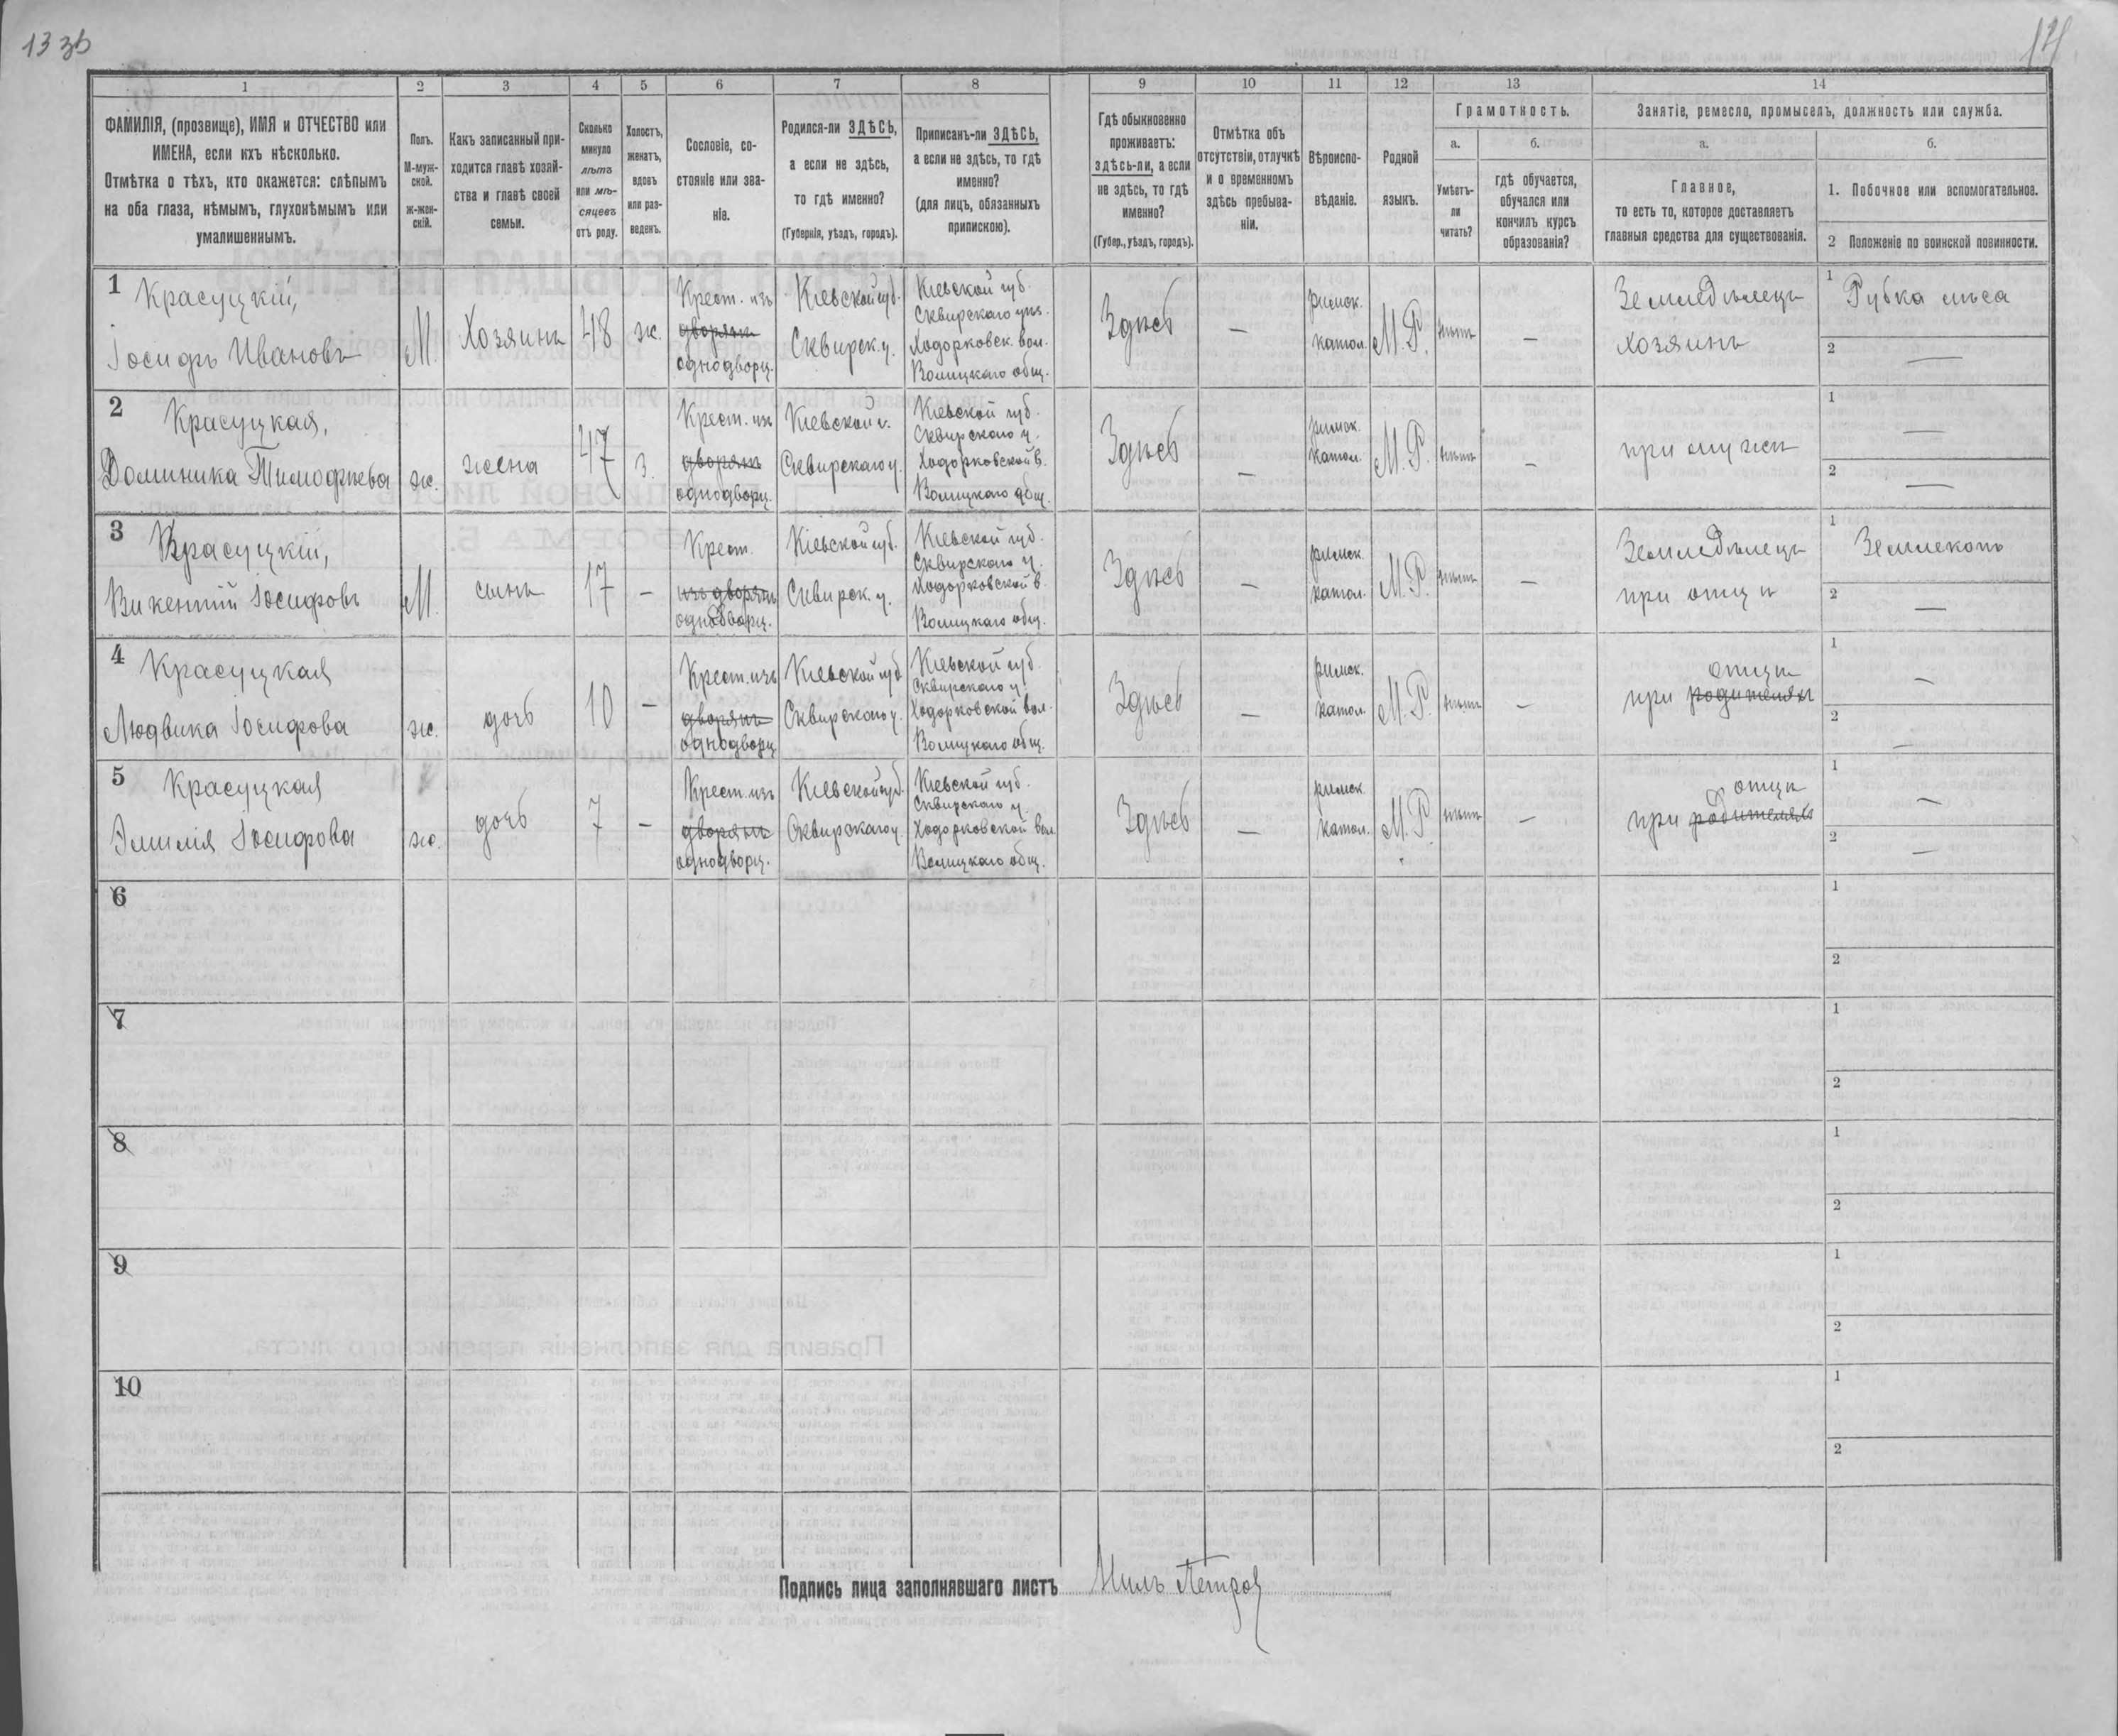 13 зв
14
1
2
3
4
5
6
7
8
9
10
11
12
13
14
ФАМИЛІЯ, (прозвище), ИМЯ и ОТЧЕСТВО или
ИМЕНА, если ихъ нѣсколько.
Отмѣтка о тѣхъ, кто окажется: слѣпымъ
на оба глаза, нѣмымъ, глухонѣмымъ или
умалишеннымъ.
Полъ.
М-муж-
ской.
ж-жен-
скій.
Какъ записанный при-
ходится главѣ хозяй-
ства и главѣ своей
семьи.
Сколько
минуло
лѣтъ
или мѣ-
сяцевъ
отъ роду.
Холостъ,
женатъ,
вдовъ
или раз-
веденъ.
Сословіе, со-
стояніе или зва-
ніе.
Родился-ли ЗДѢСЬ,
а если не здѣсь,
то гдѣ именно?
(Губернія, уѣздъ, городъ).
Приписанъ-ли ЗДѢСЬ,
а если не здѣсь, то гдѣ
именно?
(для лицъ, обязанныхъ
припискою).
Гдѣ обыкновенно
проживаетъ:
здѣсь-ли, а если
не здѣсь, то гдѣ
именно?
(Губер., уѣздъ, городъ).
Отмѣтка объ
отсутствіи, отлучкѣ
и о временномъ
здѣсь пребыва-
ніи.
Вѣроиспо-
вѣданіе.
Родной
языкъ.
Грамотность.
а.
Умѣетъ-
ли
читать?
б.
гдѣ обучается,
обучался или
кончилъ курсъ
образованія?
Занятіе, ремесло, промыселъ, должность или служба.
а.
Главное,
то есть то, которое доставляетъ
главныя средства для существованія.
б.
1. Побочное или вспомогательное.
2 Положеніе по воинской повинности.
1
Красуцкій,
Іосифъ Ивановъ
М.
Хозяинъ
48
ж.
Крест. изъ
дворянъ
однодворц.
Кіевской губ.
Сквирск. у.
Кіевской губ.
Сквирскаго уѣз.
Ходорковск. вол.
Волицкаго общ.
Здѣсь
—
римск.
катол.
М. Р.
нѣтъ
—
Земледѣлецъ
хозяинъ
1 Рубка лѣса
2 —
2
Красуцкая,
Доминика Тимофѣева
ж.
жена
47
З.
Крест. изъ
дворянъ
однодворц.
Кіевской г.
Сквирскаго у.
Кіевской губ.
Сквирскаго у.
Ходорковской в.
Волицкаго общ.
Здѣсь
—
римск.
катол.
М. Р.
нѣтъ
—
при мужѣ
1 —
2 —
3
Красуцкій,
Викентій Іосифовъ
М.
сынъ
17
—
Крест.
изъ дворянъ
однодворц.
Кіевской губ.
Сквирск. у.
Кіевской губ.
Сквирскаго у.
Ходорковской в.
Волицкаго общ.
Здѣсь
—
римск.
катол.
М. Р.
нѣтъ
—
Земледѣлецъ
при отцѣ
1 Землекопъ
2 —
4
Красуцкая
Людвика Іосифова
ж.
дочь
10
—
Крест. изъ
дворянъ
однодворц
Кіевской губ
Сквирскаго у.
Кіевской губ.
Сквирскаго у.
Ходорковской вол.
Волицкаго общ.
Здѣсь
—
римск.
катол.
М. Р.
нѣтъ
—
отцѣ
при родителяхъ
1 —
2 —
5
Красуцкая
Эмилія Іосифова
ж.
дочь
7
—
Крест. изъ
дворянъ
однодворц.
Кіевской губ.
Сквирскаго у.
Кіевской губ.
Сквирскаго у.
Ходорковской вол.
Волицкаго общ.
Здѣсь
—
римск.
катол.
М. Р.
нѣтъ
—
отцѣ
при родителяхъ
1 —
2 —
6
1
2
7
1
2
8
1
2
9
1
2
10
1
2
Подпись лица заполнявшаго листъ